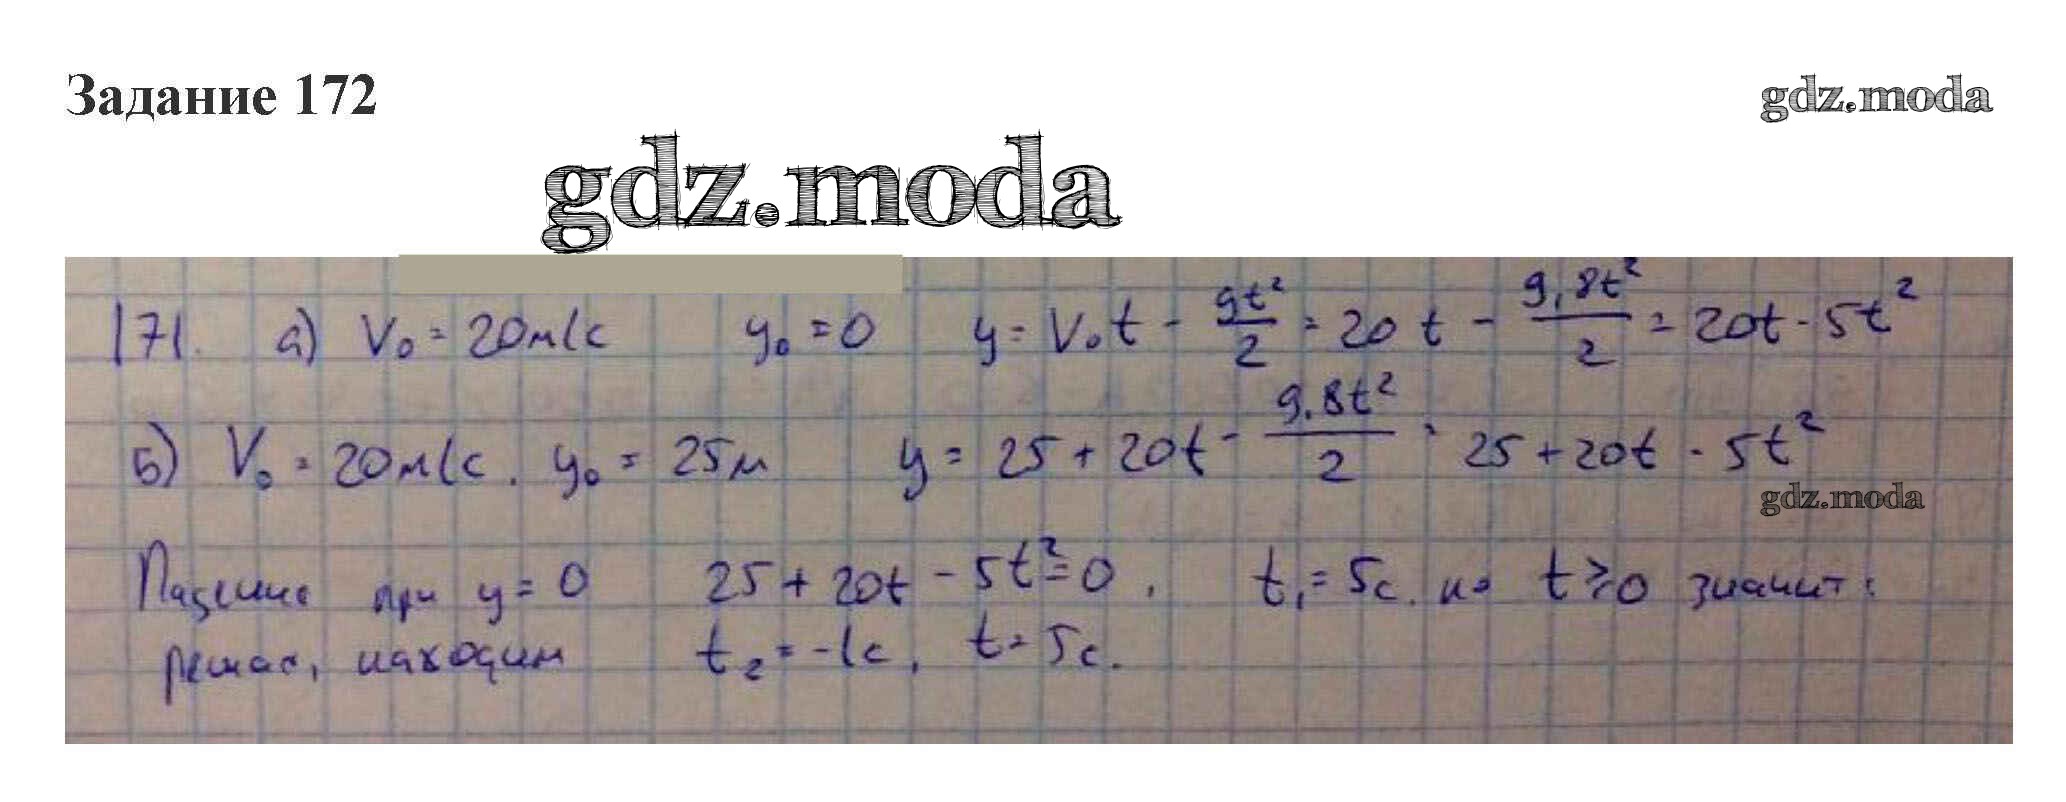 Задание 172
gdz.moda
gdz.moda
171. а) V₀ = 20м/с y₀ = 0 y = V₀t - gt²/2 = 20t - 9,8t²/2 = 20t - 5t²
б) V₀ = 20м/с. y₀ = 25м y = 25 + 20t - 9.8t²/2 = 25 + 20t - 5t²
gdz.moda
Падение при y = 0 25 + 20t - 5t² = 0, t₁ = 5с. но t ≥ 0 значит:
решая, находим t₂ = -1с, t = 5с.